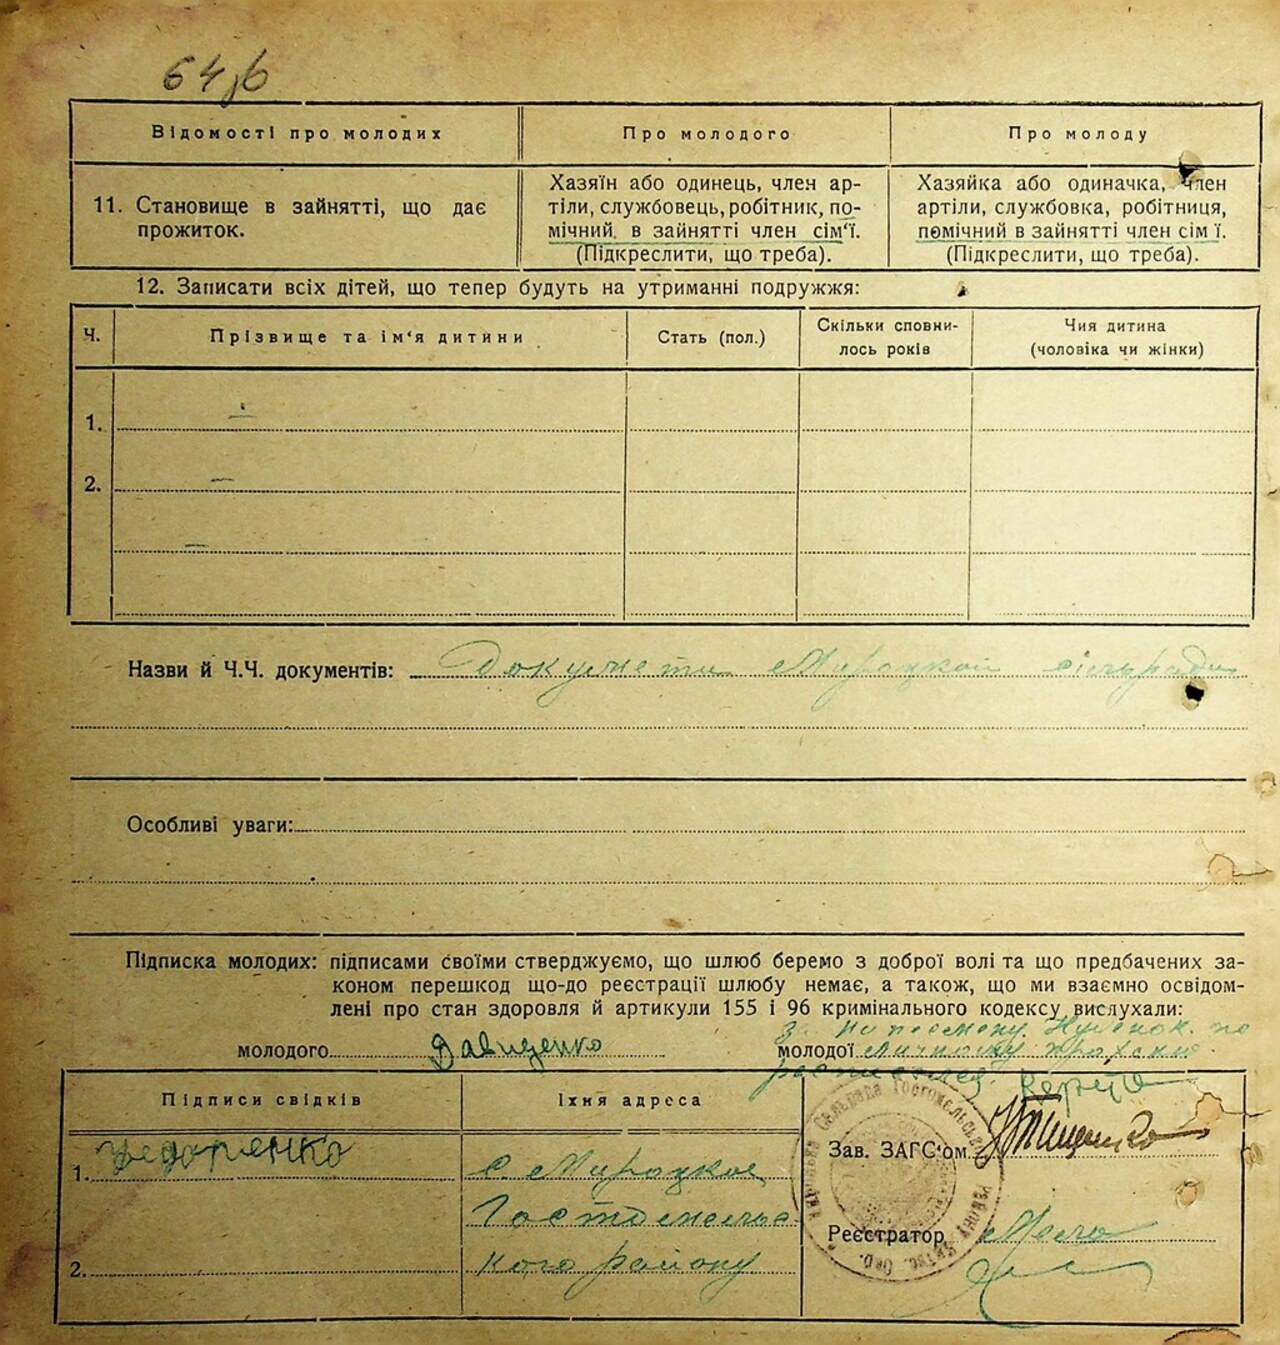 64 зб
Відомості про молодих
Про молодого
Про молоду
11. Становище в зайнятті, що дає
прожиток.
Хазяїн або одинець, член ар-
тіли, службовець, робітник, по-
мічний в зайнятті член сім'ї.
(Підкреслити, що треба).
Хазяйка або одиначка, член
артіли, службовка, робітниця,
помічний в зайнятті член сім'ї.
(Підкреслити, що треба).
12. Записати всіх дітей, що тепер будуть на утриманні подружжя:
Ч.
Прізвище та ім'я дитини
Стать (пол.)
Скільки сповни-
лось років
Чия дитина
(чоловіка чи жінки)
1. —
2. —
—
Назви й Ч.Ч. документів: Документи Мироцкой сільради
Особливі уваги:
Підписка молодих: підписами своїми стверджуємо, що шлюб беремо з доброї волі та що предбачених за-
коном перешкод що-до реєстрації шлюбу немає, а також, що ми взаємно освідом-
лені про стан здоровля й артикули 155 і 96 кримінального кодексу вислухали:
молодого Давиденко
молодої
личному
Підписи свідків
Їхня адреса
1. Федоренко
с. Мироцкое
Гостомельс-
кого району
2.
Зав. ЗАГС'ом
Реєстратор